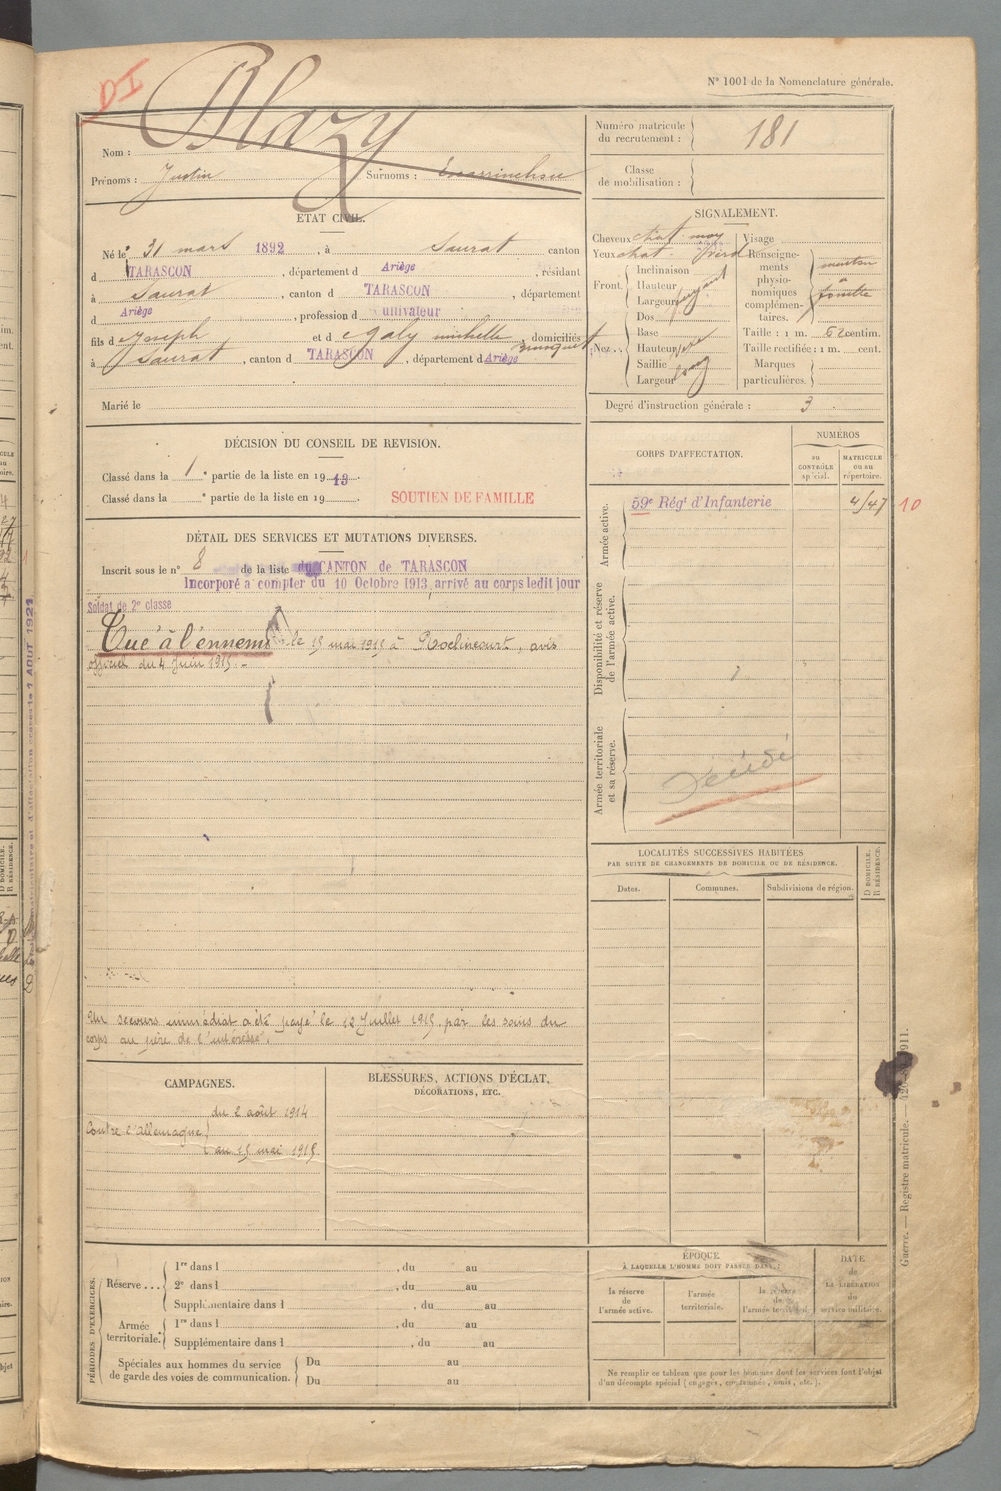 N° 1001 de la Nomenclature générale.
Blazy
Nom :
Prénoms : Justin Surnoms :
Numéro matricule du recrutement : 181
Classe de mobilisation :
ETAT CIVIL.
Né le 31 mars 1892, à Saurat canton
d TARASCON, département d Ariège, résidant
à Saurat, canton d TARASCON, département
d Ariège, profession d cultivateur
fils d Joseph et d Galy michelle, domiciliés
à Saurat, canton d TARASCON, département d Ariège
Marié le
SIGNALEMENT.
Cheveux chat. moy Visage
Yeux chat.
Renseignements physionomiques complémentaires. menton à
Front. Inclinaison
Hauteur
Largeur
Nez... Dos
Base
Hauteur
Saillie
Largeur
Taille : 1 m. 62 centim.
Taille rectifiée : 1 m. cent.
Marques particulières.
Degré d'instruction générale : 3
DÉCISION DU CONSEIL DE REVISION.
Classé dans la 1 e partie de la liste en 1913.
Classé dans la e partie de la liste en 19 .
SOUTIEN DE FAMILLE
DÉTAIL DES SERVICES ET MUTATIONS DIVERSES.
Inscrit sous le n° 8 de la liste du CANTON de TARASCON
Incorporé à compter du 10 Octobre 1913, arrivé au corps ledit jour
Soldat de 2e classe
Tué à l'ennemi le 15 mai 1915 à Roclincourt, avis
officiel du 4 Juin 1915.-
Un secours immédiat a été payé le 12 Juillet 1915, par les soins du
corps au père de l'intéressé.
CORPS D'AFFECTATION.
NUMÉROS
AU CONTRÔLE spécial.
MATRICULE ou au répertoire.
Armée active.
59e Régt d'Infanterie 4147 10
Disponibilité et réserve de l'armée active.
Armée territoriale et sa réserve.
LOCALITÉS SUCCESSIVES HABITÉES
PAR SUITE DE CHANGEMENTS DE DOMICILE OU DE RÉSIDENCE.
Dates. Communes. Subdivisions de région.
D DOMICILE.
R RÉSIDENCE.
CAMPAGNES.
Contre l'Allemagne
du 2 août 1914
au 15 mai 1915
BLESSURES, ACTIONS D'ÉCLAT,
DÉCORATIONS, ETC.
PÉRIODES D'EXERCICES.
Réserve...
1re dans l , du au
2e dans l , du au
Supplémentaire dans l , du au
Armée territoriale.
1re dans l , du au
Supplémentaire dans l , du au
Spéciales aux hommes du service de garde des voies de communication.
Du au
Du au
ÉPOQUE
À LAQUELLE L'HOMME DOIT PASSER DANS :
la réserve de l'armée active.
l'armée territoriale.
la réserve de l'armée territorial.
DATE de LA LIBÉRATION du service militaire.
Ne remplir ce tableau que pour les hommes dont les services font l'objet
d'un décompte spécial (engagés, condamnés, omis, etc.).
Guerre. — Registre matricule. —